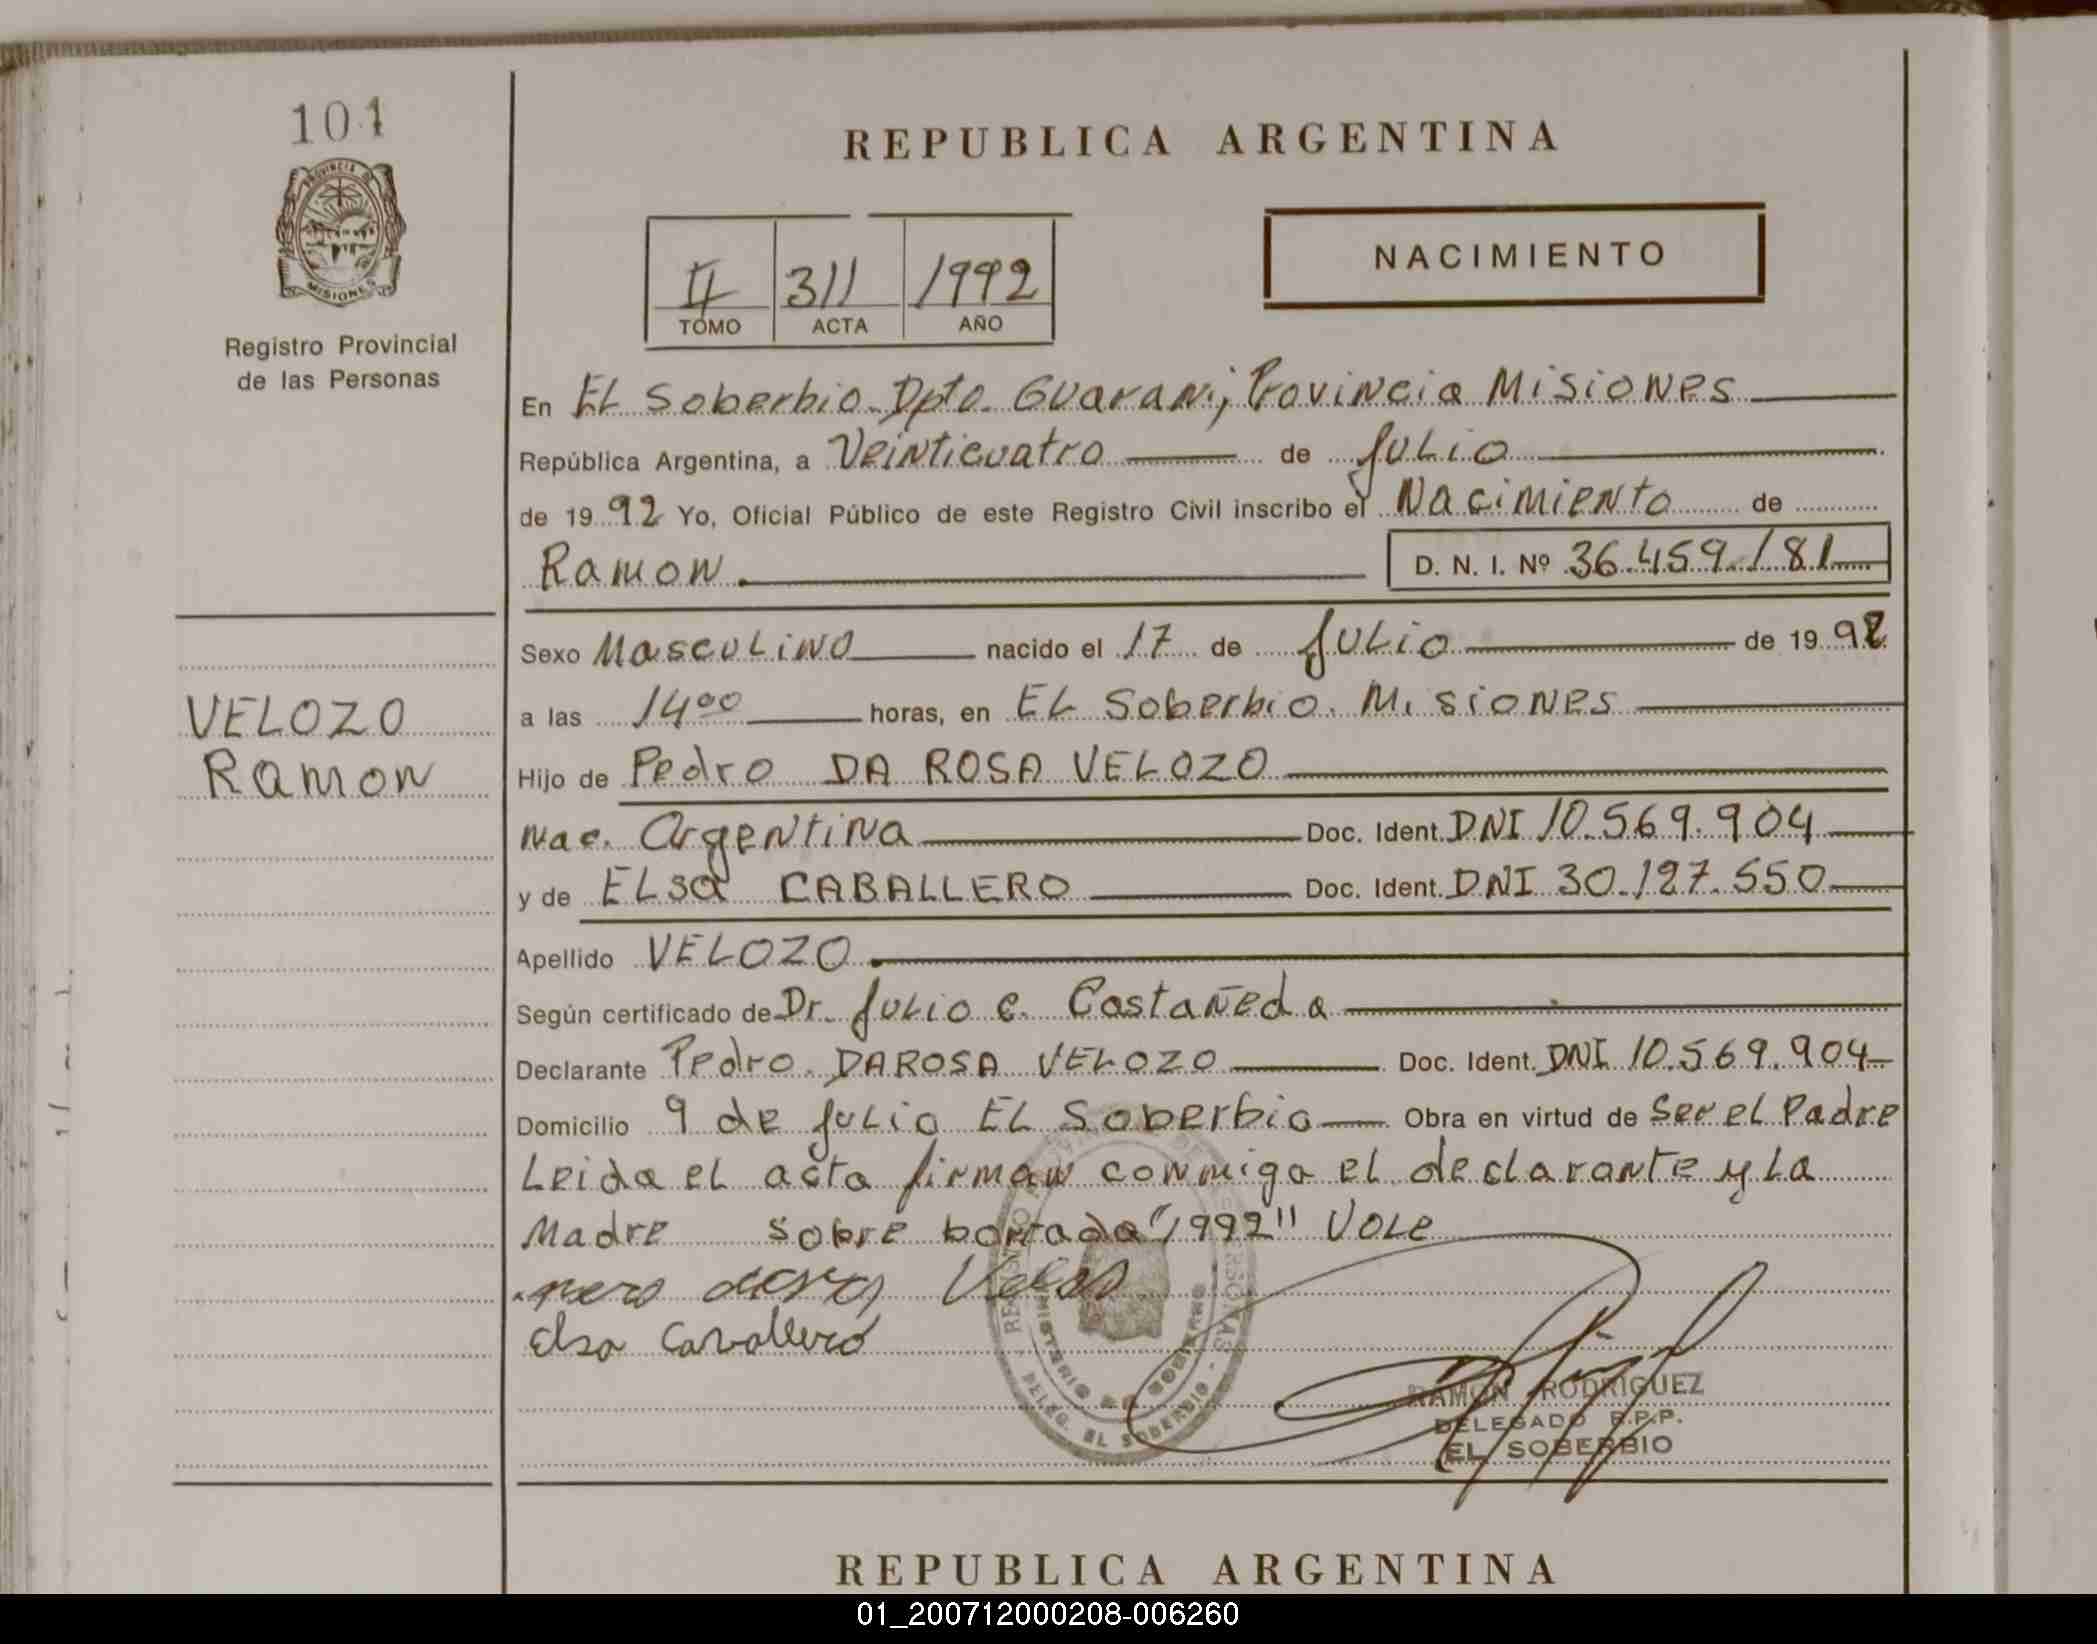 101
PROVINCIA DE
MISIONES
Registro Provincial
de las Personas
REPUBLICA ARGENTINA
II 311 1992
TOMO ACTA AÑO
NACIMIENTO
En EL Soberbio Dpto. Guarani, Provincia Misiones
República Argentina, a Veinticuatro de Julio
de 1992 Yo, Oficial Público de este Registro Civil inscribo el Nacimiento de
Ramon D. N. I. Nº 36.459.181
Sexo Masculino nacido el 17 de Julio de 1992
VELOZO
Ramon
a las 14⁰⁰ horas, en EL Soberbio. Misiones
Hijo de Pedro DA ROSA VELOZO
Nac. Argentina Doc. Ident. DNI 10.569.904
y de ELsa CABALLERO Doc. Ident. DNI 30.127.550
Apellido VELOZO
Según certificado de Dr. Julio C. Castañeda
Declarante Pedro DAROSA VELOZO Doc. Ident. DNI 10.569.904
Domicilio 9 de Julio EL Soberbio Obra en virtud de Ser el Padre
Leida el acta firman conmigo el declarante y La
Madre sobre borrado "1992" Vale
Velos
Elsa Cavallero
MINISTERIO DE GOBIERNO
DELEG. EL SOBERBIO
RAMON RODRIGUEZ
DELEGADO R.P.P.
EL SOBERBIO
REPUBLICA ARGENTINA
01_200712000208-006260